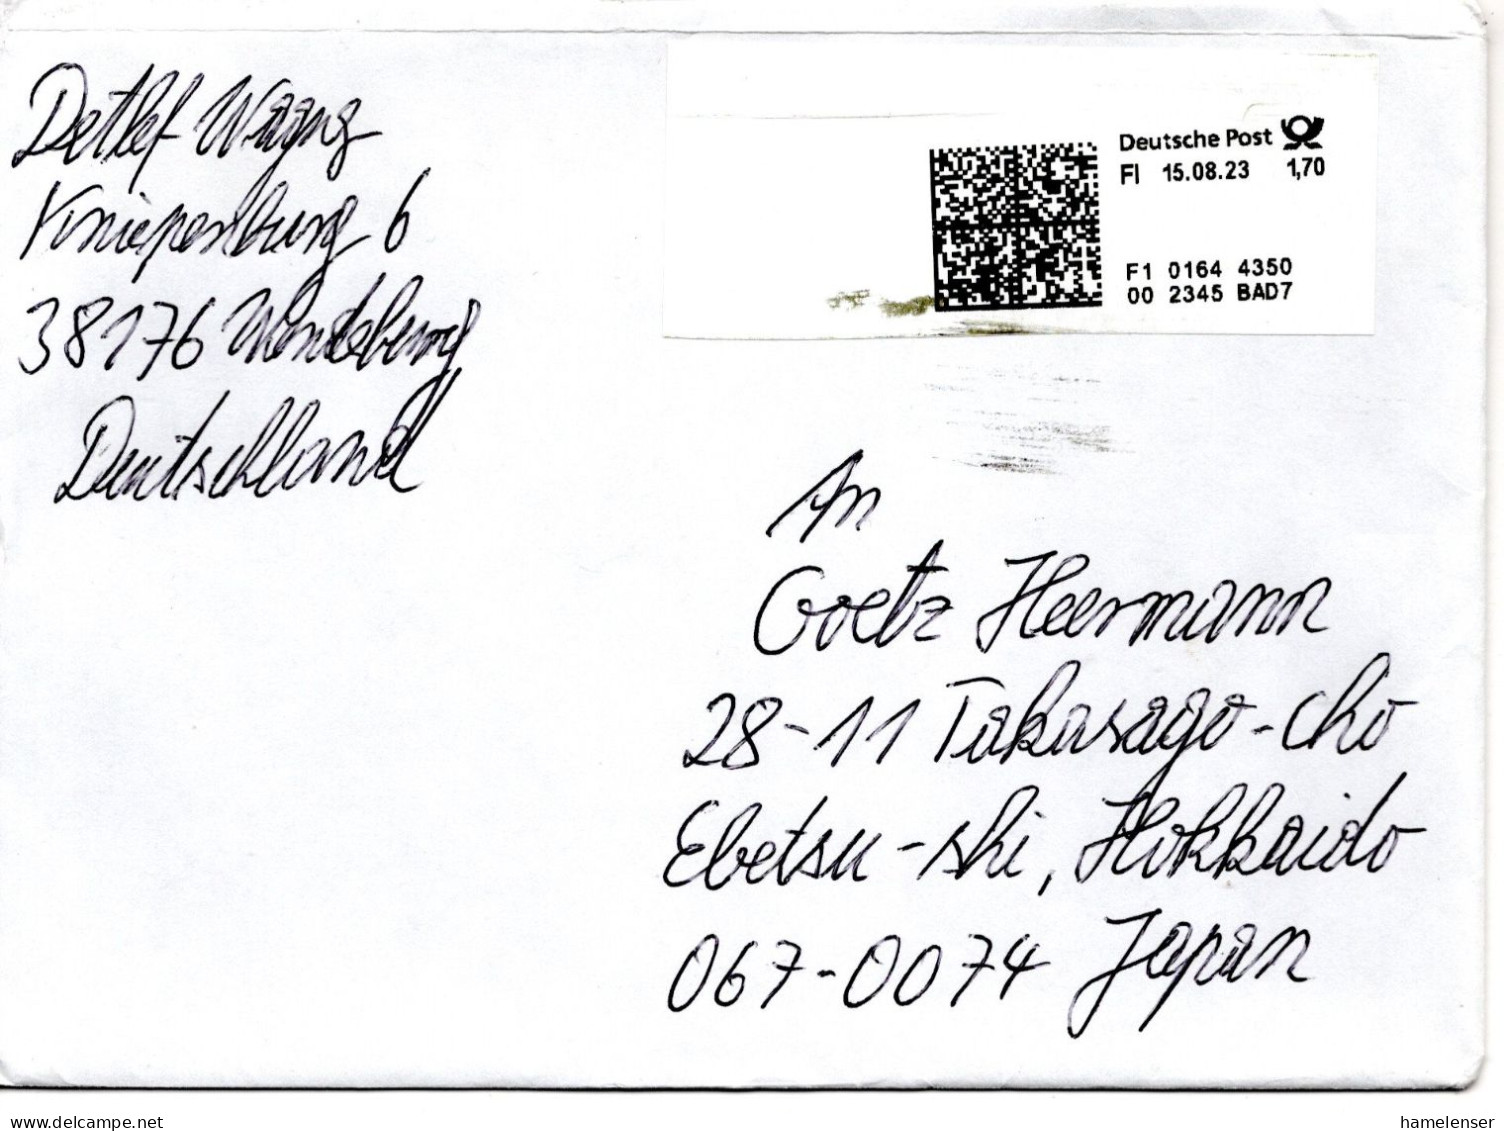 Detlef Wagnz
Kniepenburg 6
38176 Wendeburg
Deutschland
Deutsche Post
FI 15.08.23 1,70
F1 0164 4350
00 2345 BAD7
An
Goetz Heermann
28-11 Takasago-cho
Ebetsu-shi, Hokkaido
067-0074 Japan
delcampe.net
hamelenser